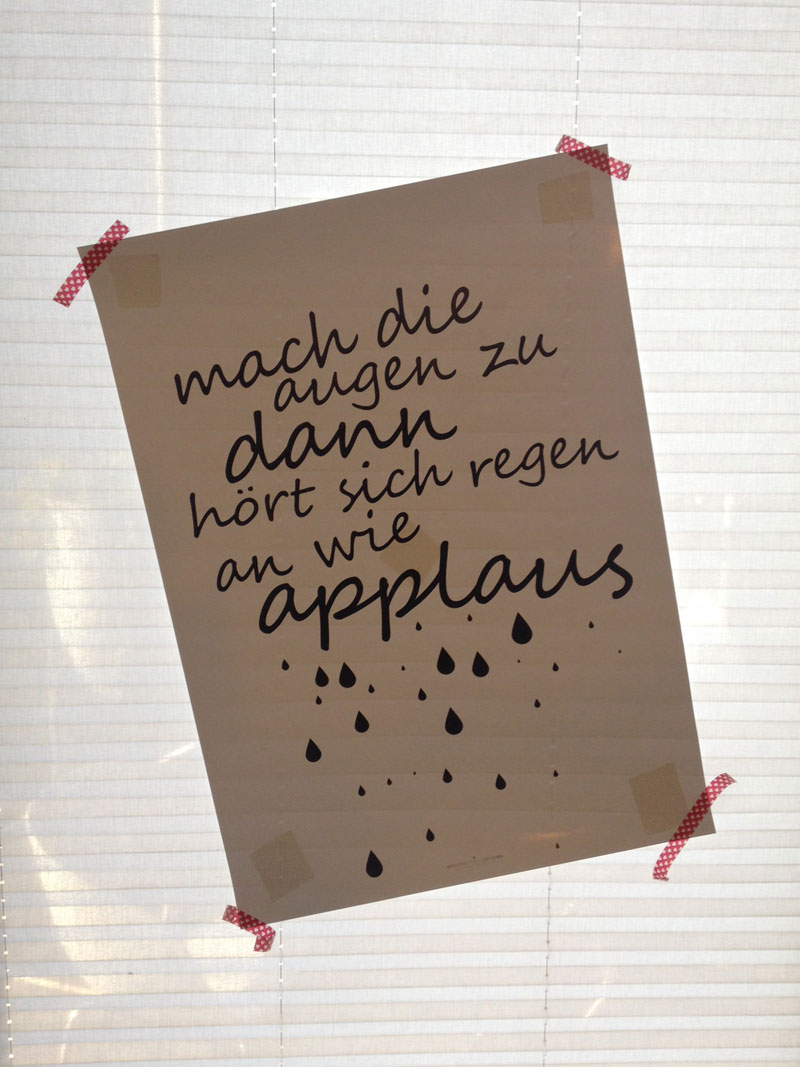 mach die
augen zu
dann
hört sich regen
an wie
applaus